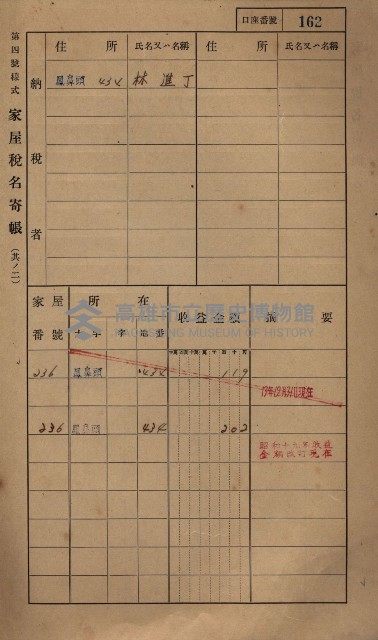 口座番號 162
第四號樣式 家屋稅名寄帳 (其ノ二)
納稅者
住所 氏名又ハ名稱 住所 氏名又ハ名稱
鳳鼻頭 434 林進丁
家屋番號 所在 收益金額 摘要
大字 字 地番
236 鳳鼻頭 434 119
236 鳳鼻頭 434 202
昭和十九年收益
金額改訂現在
高雄市立歷史博物館
KAOHSIUNG MUSEUM OF HISTORY